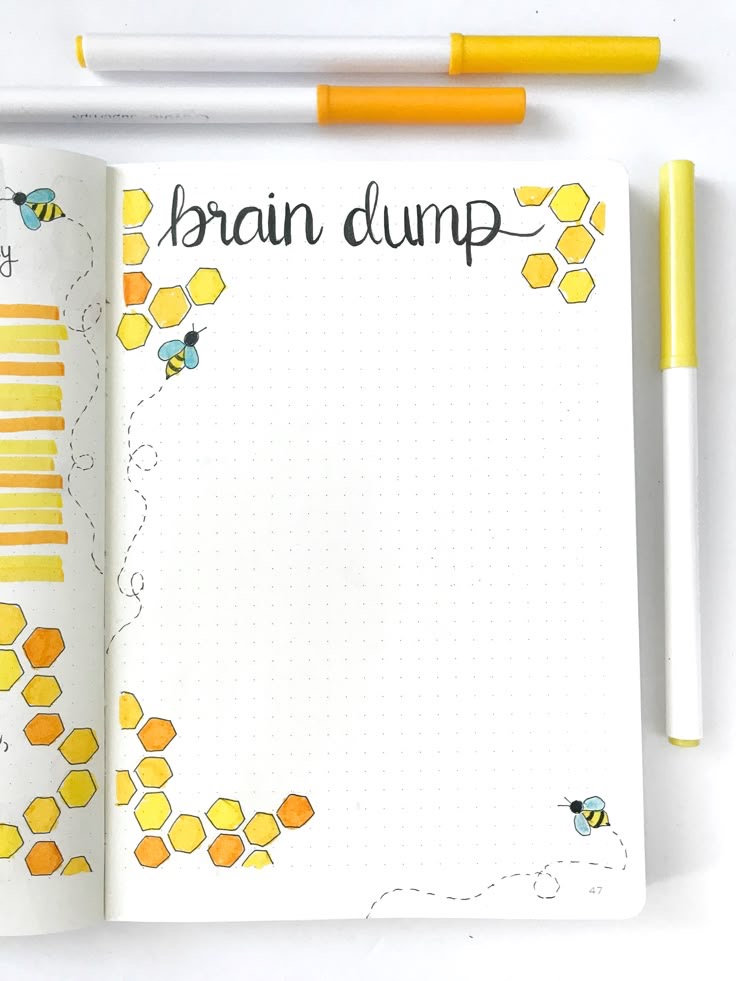 brain dump
y
47